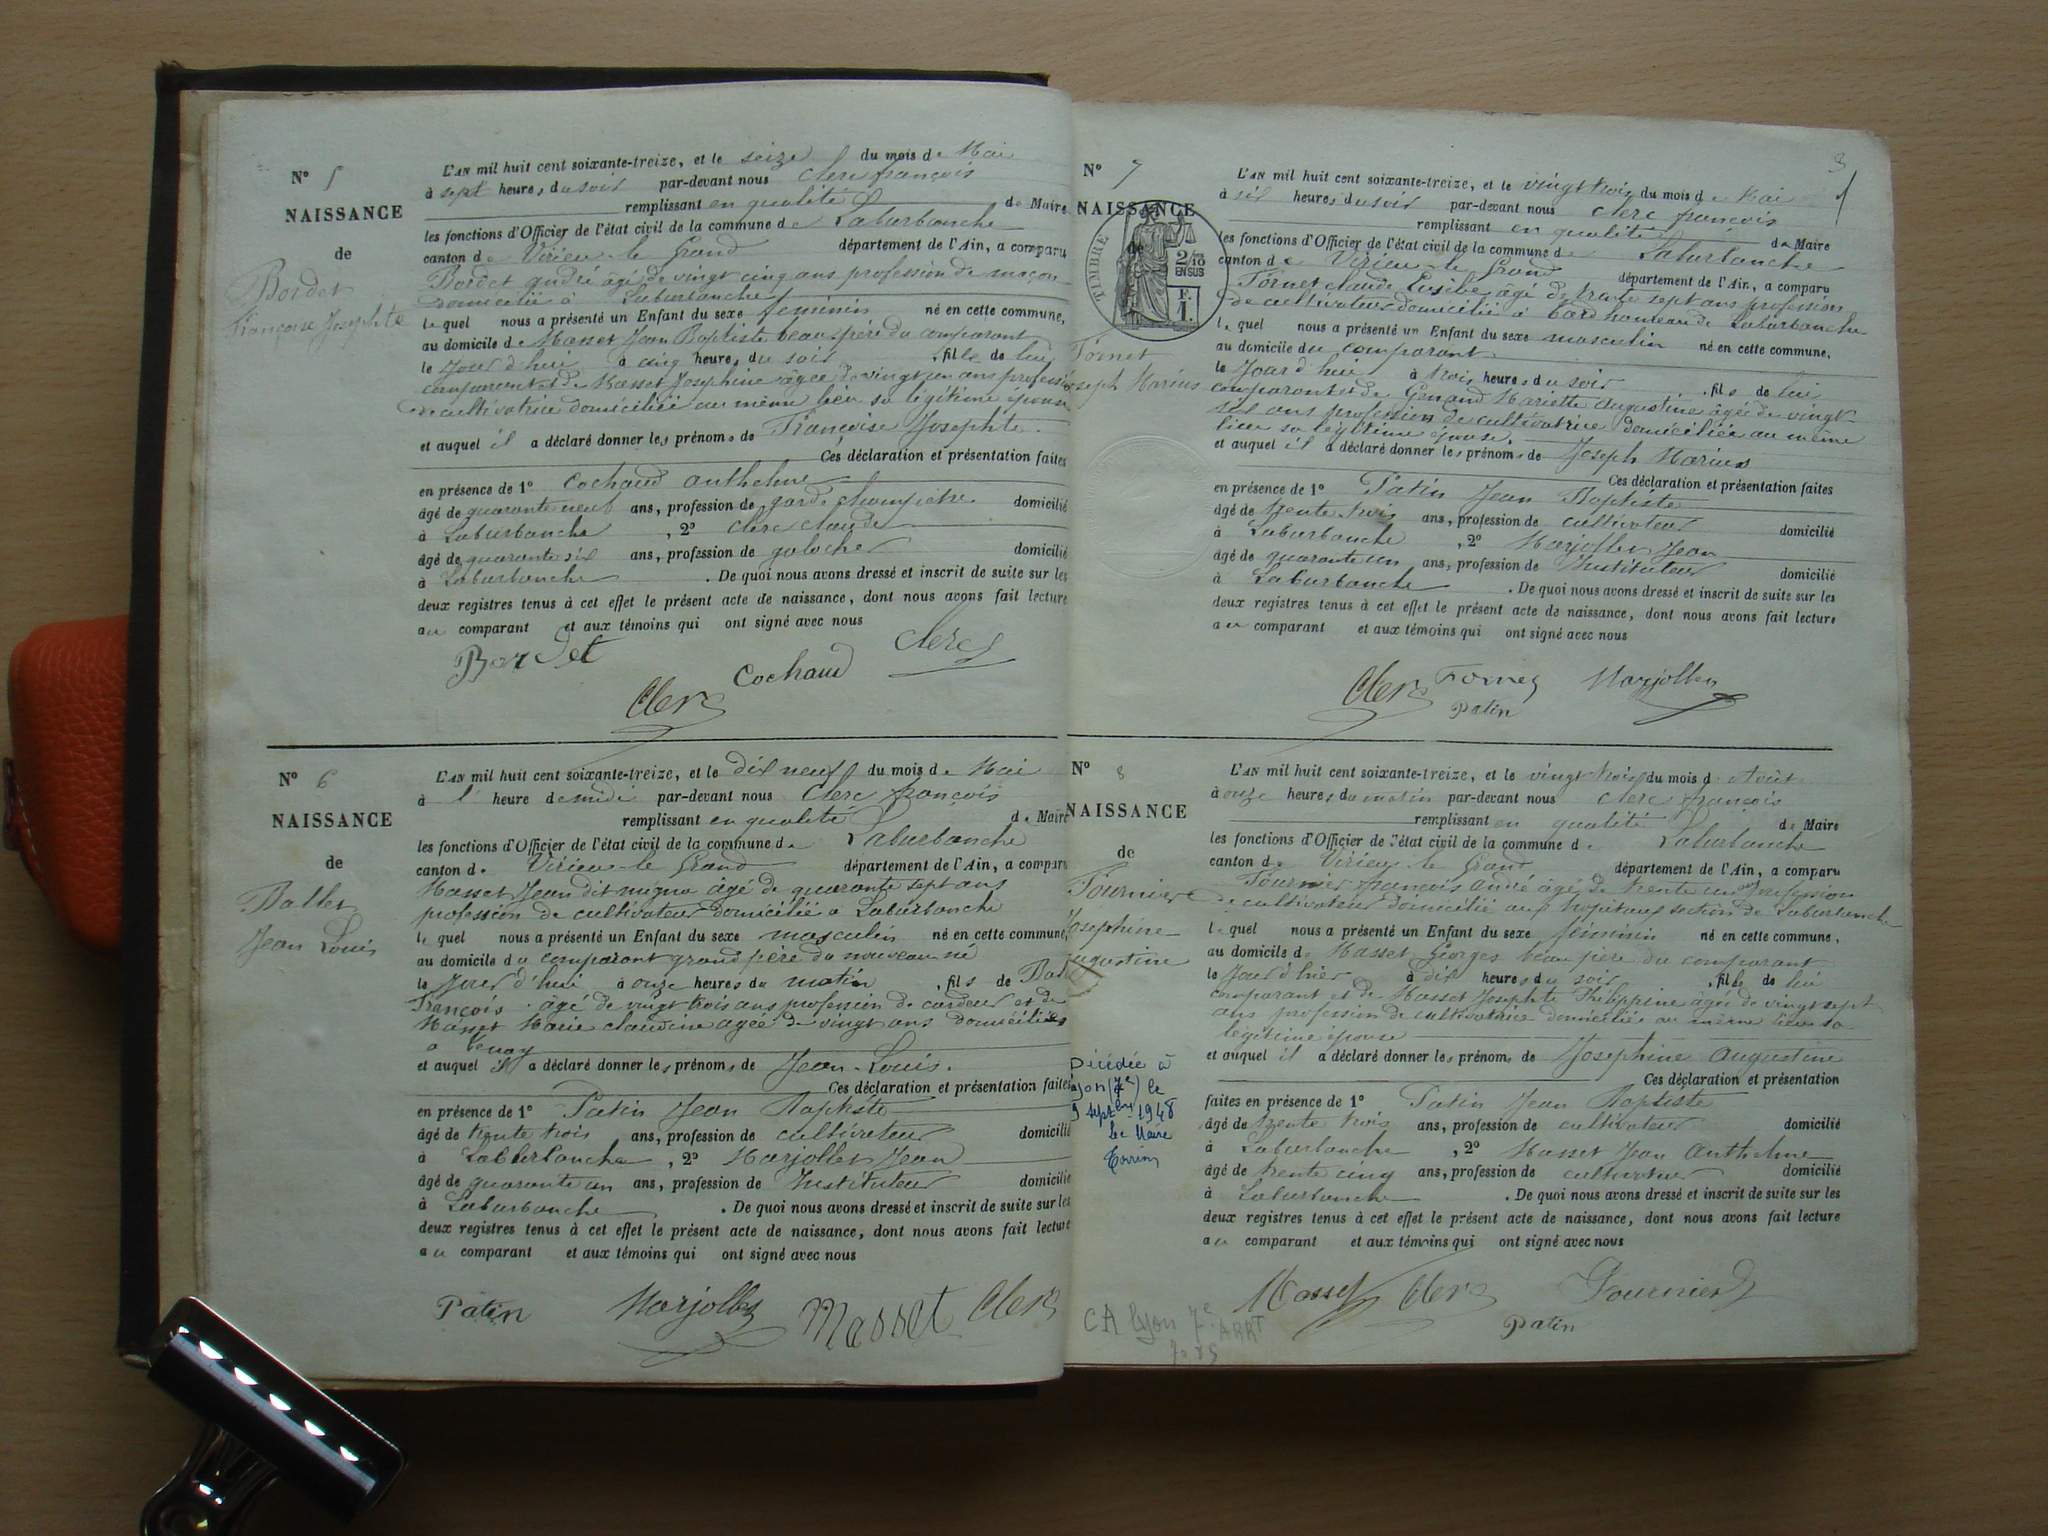 N° 5
NAISSANCE
de
Bordet
Françoise Josephte
L'AN mil huit cent soixante-treize, et le seize du mois de Mai
à sept heures du soir par-devant nous Clerc françois
remplissant en qualité de Maire
les fonctions d'Officier de l'état civil de la commune de Laburbanche
canton de Virieu-le Grand département de l'Ain, a comparu
Bordet andré âgé de vingt cinq ans profession de maçon
domicilié à Laburbanche
lequel nous a présenté un Enfant du sexe feminin né en cette commune,
au domicile de Masset Jean Baptiste beau père du comparant
le Jour d'hui à cinq heures du soir fille de lui
comparant et de Masset Josephine âgée de vingt un ans profession
de cultivatrice domiciliée au même lieu sa légitime épouse
et auquel il a déclaré donner les prénoms de Françoise Josephte.
Ces déclaration et présentation faites
en présence de 1° Cochaud anthelme
âgé de quarante neuf ans, profession de garde champêtre domicilié
à Laburbanche , 2° Clerc claude
âgé de quarante six ans, profession de galocher domicilié
à Laburbanche . De quoi nous avons dressé et inscrit de suite sur les
deux registres tenus à cet effet le présent acte de naissance, dont nous avons fait lecture
au comparant et aux témoins qui ont signé avec nous
Bordet Cochaud Clerc
Clerc
N° 6
NAISSANCE
de
Ballet
Jean Louis
L'AN mil huit cent soixante-treize, et le dix neuf du mois de Mai
à l' heure de midi par-devant nous Clerc françois
remplissant en qualité de Maire
les fonctions d'Officier de l'état civil de la commune de Laburbanche
canton de Virieu-le Grand département de l'Ain, a comparu
Masset Jean dit âgé de quarante sept ans
profession de cultivateur domicilié à Laburbanche
lequel nous a présenté un Enfant du sexe masculin né en cette commune,
au domicile du comparant grand père du nouveau né
le Jour d'hui à onze heures du matin , fils de
François âgé de vingt trois ans profession de cardeur et de
Masset Marie claudine agée de vingt ans domiciliés
a Tenay
et auquel il a déclaré donner les prénoms de Jean-Louis.
Ces déclaration et présentation faites
en présence de 1° Patin Jean Baptiste
âgé de trente trois ans, profession de cultivateur domicilié
à Laburbanche , 2° Marjollet Jean
âgé de quarante un ans, profession de Instituteur domicilié
à Laburbanche . De quoi nous avons dressé et inscrit de suite sur les
deux registres tenus à cet effet le présent acte de naissance, dont nous avons fait lecture
au comparant et aux témoins qui ont signé avec nous
Patin Marjollet Masset Clerc
3
N° 7
NAISSANCE
de
TIMBRE
2/10
EN SUS
F.
1.
Fornet
Joseph Marius
L'AN mil huit cent soixante-treize, et le vingt trois du mois de Mai
à six heures du soir par-devant nous Clerc françois
remplissant en qualité de Maire
les fonctions d'Officier de l'état civil de la commune de Laburbanche
canton de Virieu-le Grand département de l'Ain, a comparu
Fornet claude Eusèbe âgé de trente sept ans profession
de cultivateur domicilié à hameau de Laburbanche
lequel nous a présenté un Enfant du sexe masculin né en cette commune,
au domicile du comparant
le Jour d'hui à trois heures du soir , fils de lui
comparant et de Genand Mariette augustine âgée de vingt
six ans profession de cultivatrice domiciliée au même
lieu sa légitime épouse.
et auquel il a déclaré donner les prénoms de Joseph Marius
Ces déclaration et présentation faites
en présence de 1° Patin Jean Baptiste
âgé de trente trois ans, profession de cultivateur domicilié
à Laburbanche , 2° Marjollet Jean
âgé de quarante un ans, profession de Instituteur domicilié
à Laburbanche . De quoi nous avons dressé et inscrit de suite sur les
deux registres tenus à cet effet le présent acte de naissance, dont nous avons fait lecture
au comparant et aux témoins qui ont signé avec nous
Clerc Fornet Marjollet
Patin
N° 8
NAISSANCE
de
Fournier
Josephine
augustine
Décédée à
Lyon (7e) le
9 septbre 1948
Le Maire
L'AN mil huit cent soixante-treize, et le vingt trois du mois d'Août
à onze heures du matin par-devant nous Clerc françois
remplissant en qualité de Maire
les fonctions d'Officier de l'état civil de la commune de Laburbanche
canton de Virieu-le Grand département de l'Ain, a comparu
Fournier françois andré âgé de trente un ans profession
de cultivateur domicilié aux hopitaux section de Laburbanche
lequel nous a présenté un Enfant du sexe féminin né en cette commune,
au domicile de Masset Georges beau père du comparant
le Jour d'hier à dix heures du soir , fille de lui
comparant et de Masset Josephte Philippine âgée de vingt sept
ans profession de cultivatrice domiciliée au même lieu sa
légitime épouse
et auquel il a déclaré donner les prénoms de Josephine augustine
Ces déclaration et présentation
faites en présence de 1° Patin Jean Baptiste
âgé de trente trois ans, profession de cultivateur domicilié
à Laburbanche , 2° Masset Jean anthelme
âgé de trente cinq ans, profession de cultivateur domicilié
à Laburbanche . De quoi nous avons dressé et inscrit de suite sur les
deux registres tenus à cet effet le présent acte de naissance, dont nous avons fait lecture
au comparant et aux témoins qui ont signé avec nous
Masset Clerc Fournier
Patin
CA lyon 7e ARRT